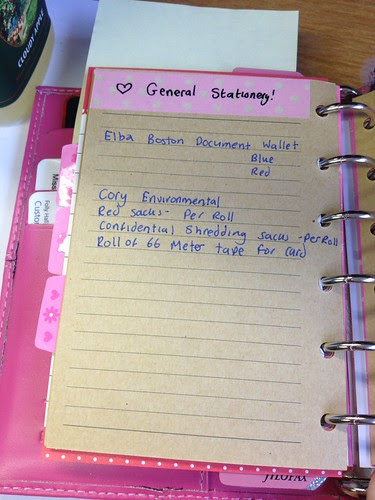 CLOUDY APPLE
♡ General Stationery!
Elba Boston Document Wallet
Blue
Red
Cory Environmental
Red sacks - Per Roll
Confidential Shredding sacks - Per Roll
Roll of 66 Meter tape for card
Custom
FILOFAX